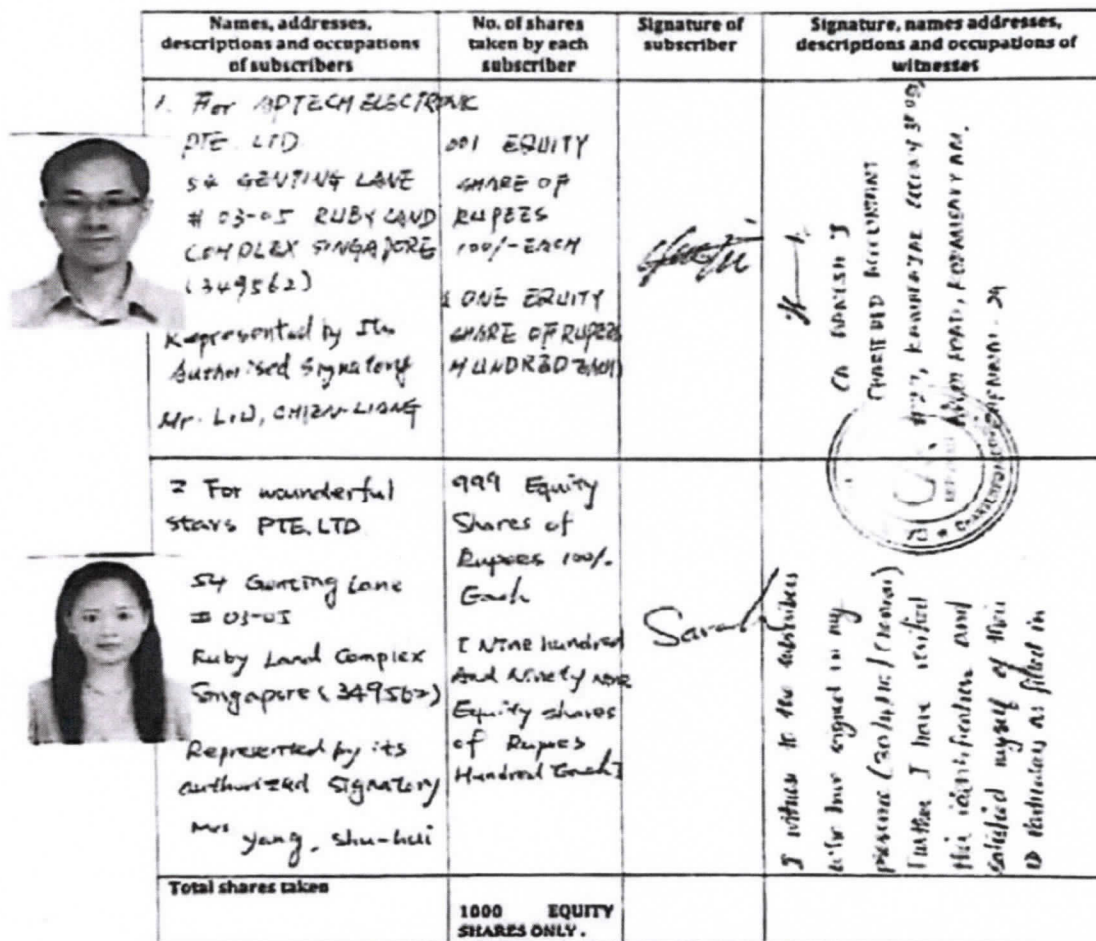 Names, addresses,
descriptions and occupations
of subscribers
No. of shares
taken by each
subscriber
Signature of
subscriber
Signature, names addresses,
descriptions and occupations of
witnesses
1. For APTECH ELECTRONIC
PTE. LTD
54 GENTING LANE
# 03-05 RUBY LAND
COMPLEX SINGAPORE
(349562)
Represented by Its
Authorised Signatory
Mr. LIU, CHIEN-LIANG
001 EQUITY
SHARE OF
RUPEES
100/- EACH
( ONE EQUITY
SHARE OF RUPEES
HUNDRED EACH)
CA J
CHARTERED ACCOUNTANT
ROAD, KODAMBAKKAM,
CHENNAI - 24
2 For wounderful
stars PTE. LTD
54 Genting Lane
# 03-05
Ruby Land Complex
Singapore (349562)
Represented by its
authorized Signatory
Mrs Yang, Shu-hui
999 Equity
Shares of
Rupees 100/-
Each
[ Nine hundred
And Ninety Nine
Equity shares
of Rupees
Hundred Each]
Sarah
I witness to the subscribers
who have signed in my
presence
Further I have verified
their identification and
satisfied myself of their
ID particulars as filled in
Total shares taken
1000 EQUITY
SHARES ONLY.